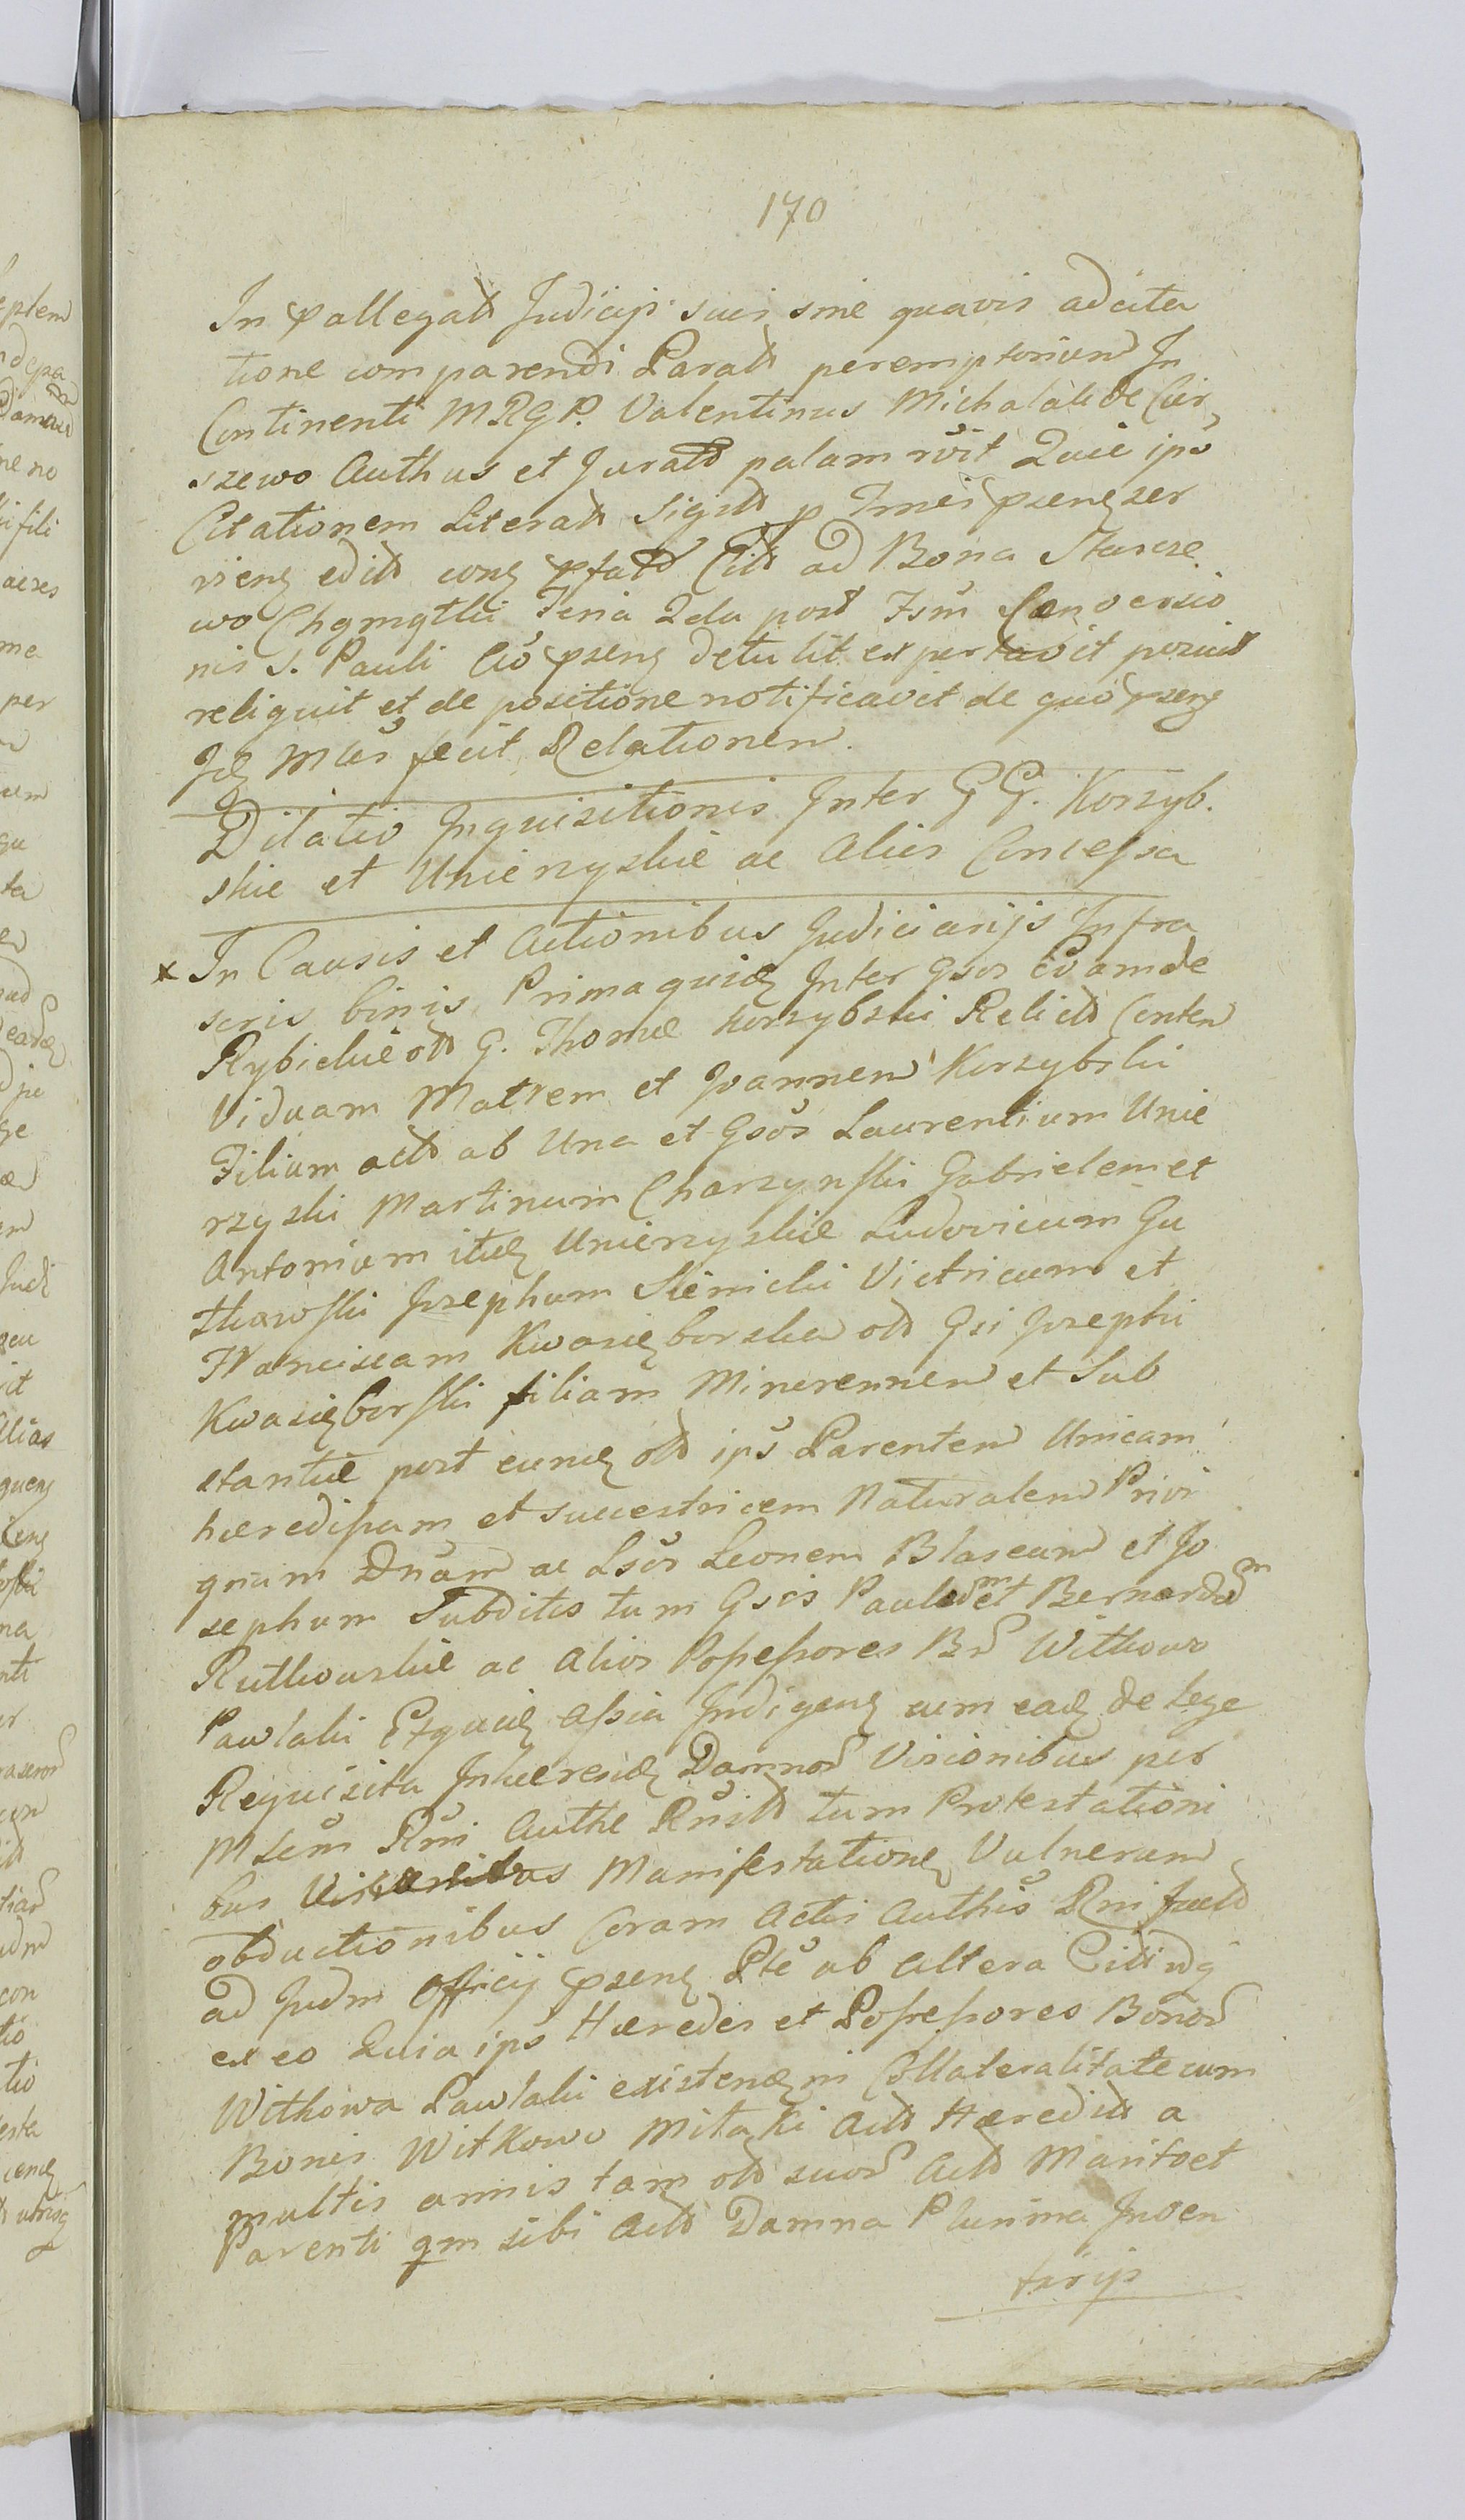 170
In pallegatt Judicij suis sine quavis adcita
tione comparendi Paratt peremptorium In
Continenti MRGP. Valentinus Michalski de Cier
szewo Authus et Juratt palam rvit Quie ips
Citationem Literatt Sigtt p Imei psenz ser
vienz editt conz pfatt Citt ad Bona Starcze
wo Chgmgthi Feria 2da post Fsm Conversio
nis S. Pauli Co psenz detulit exportavit posuit
reliquit et de positione notificavit de quo psenz
Idz Mles fecit Relationem.
Dilatio Inquisitionis Inter GG. Korzyb.
skie et Unierzyskie ac Alies Concessa
x In Causis et Actionibus Judiciarijs Infra
scris binis Prima quidz Inter Gsos Evam de
Rybickie ott G. Thomæ Korzybski Relictt Conten
Viduam Matrem et Joannem Korzybski
Filium actt ab Una et Gsos Laurentium Unie
rzyski Martinum Charzynski Gabrielem et
Antonium itidz Unierzyskie Ludovicum Gu
tkowski Josephum Slenicki Victricum et
Franciscam Kwasięborska ott Gsi Josephi
Kwasięborski filiam Minorennem et Sub
stantiæ post eundz ott ips Parentem Unicam
hæredipam et successtricem Naturalem Privi
gnam Dnam ac Lsos Leonem Blaseum et Jo
sephum Subditos tum Gsis Paulum et Bernardum
Rutkowskie ac Alios Possessores Br Witkowo
Pawlaki Exquidz Assia Indigenz cum eadz de lege
Requisita Inhærendz Damnor Visionibus per
Mlem Rni Authe Rnitt tum Protestationi
bus Manifestationz Vulnerum
obductionibus Coram Actis Authis Rni factt
ad Judm Officij psenz Pte ab Altera Citt idq
ex eo Quia ips Hæredes et Possessores Bonor
Witkowa Pawlaki existendz in Collateralitate cum
Bonis Witkowo Mitaki Actt Hæreditt a
multis annis tam ott suor Actt Marito et
Parenti qm sibi Actt Damna Plurima Inven
tarijs